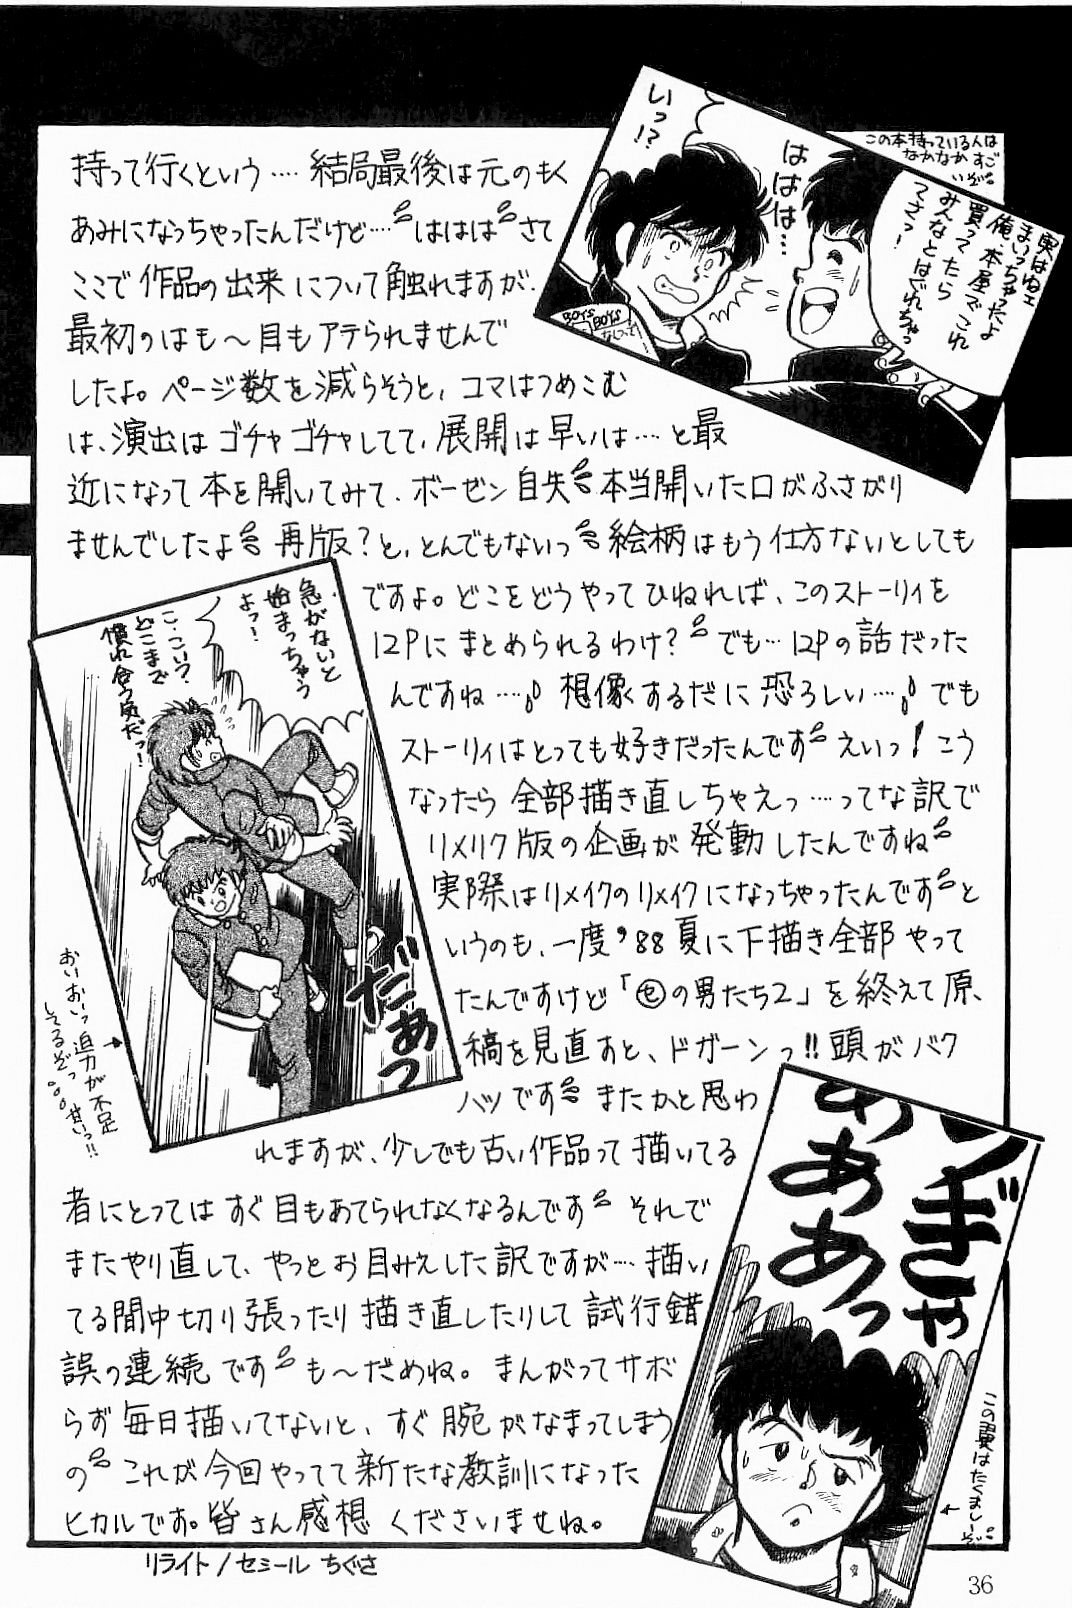 この本持っている人は
なかなかすご
いぞ。
いっ!?
ははは…
実はねェ
まいっちゃったよ
俺、本屋でこれ
買ってたら
みんなとはぐれちゃっ
てさっ!
BOYS
BOYS
持って行くという‥‥結局最後は元のもく
あみになっちゃったんだけど‥‥ははは さて
ここで作品の出来について触れますが、
最初のはも〜目もアテられませんで
したよ。ページ数を減らそうと、コマはつめこむ
は、演出はゴチャゴチャしてて、展開は早いは…と最
近になって本を開いてみて、ボーゼン自失 本当開いた口がふさがり
ませんでしたよ 再版?と、とんでもないっ 絵柄はもう仕方ないとしても
ですよ。どこをどうやってひねれば、このストーリィを
12Pにまとめられるわけ? でも…12Pの話だった
んですね‥‥ 想像するだに恐ろしい‥‥ でも
ストーリィはとっても好きだったんです えいっ!こう
なったら全部描き直しちゃえっ‥‥ってな訳で
リメイク版の企画が発動したんですね
実際はリメイクのリメイクになっちゃったんです と
いうのも、一度'88夏に下描き全部やって
たんですけど「㊙の男たち2」を終えて原、
稿を見直すと、ドガーンっ!!頭がバク
ハツです またかと思わ
れますが、少しでも古い作品って描いてる
者にとってはすぐ目もあてられなくなるんです それで
またやり直して、やっとお目みえした訳ですが‥‥描い
てる間中切り張ったり描き直したりして試行錯
誤の連続です も〜だめね。まんがってサボ
らず毎日描いてないと、すぐ腕がなまってしまう
の これが今回やってて新たな教訓になった
ヒカルです。皆さん感想くださいませね。
急がないと
始まっちゃう
よっ!
こ・こいつ・
どこまで
慣れ合う気だっ!
だあっ
おいおいっ迫力が不足
してるぞっ 甘いっ!!
ぎゃ
ああぁっ
この眉はたくましーぞ
リライト/セミール ちぐさ
36